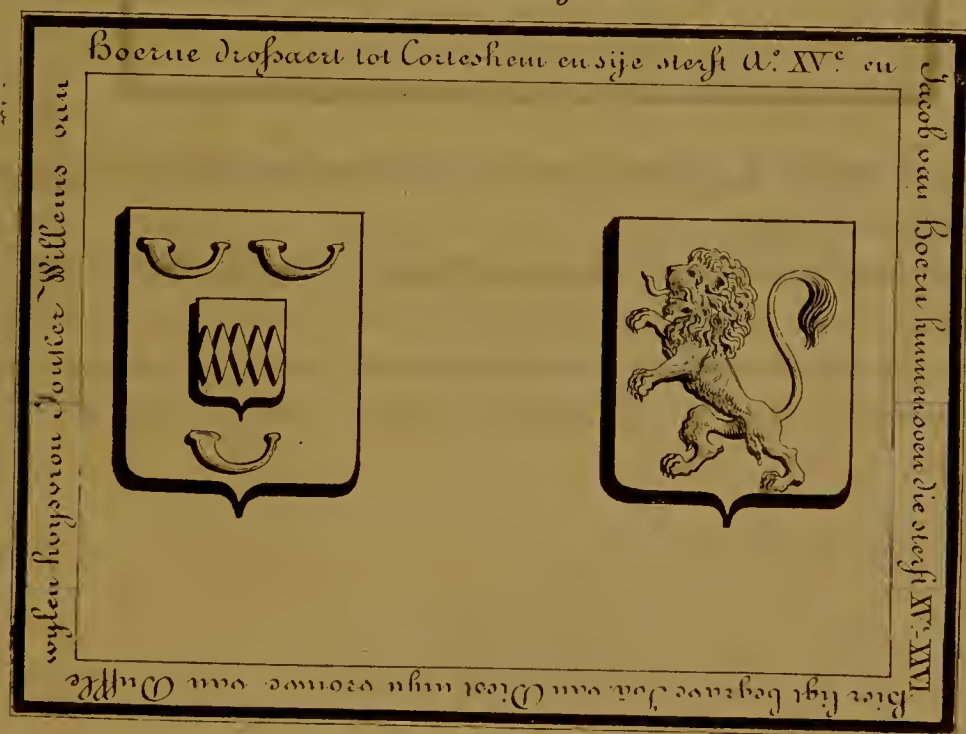 Hier ligt begrave Joā van Diest myn vrouwe van Duffle
wylen huysvrou Jonker Willems van
Boerne drossaert tot Corteshem ensije sterft Aº. XVᶜ. en
Jacob van Boern hunnensoen die sterft XVᶜ. XVI